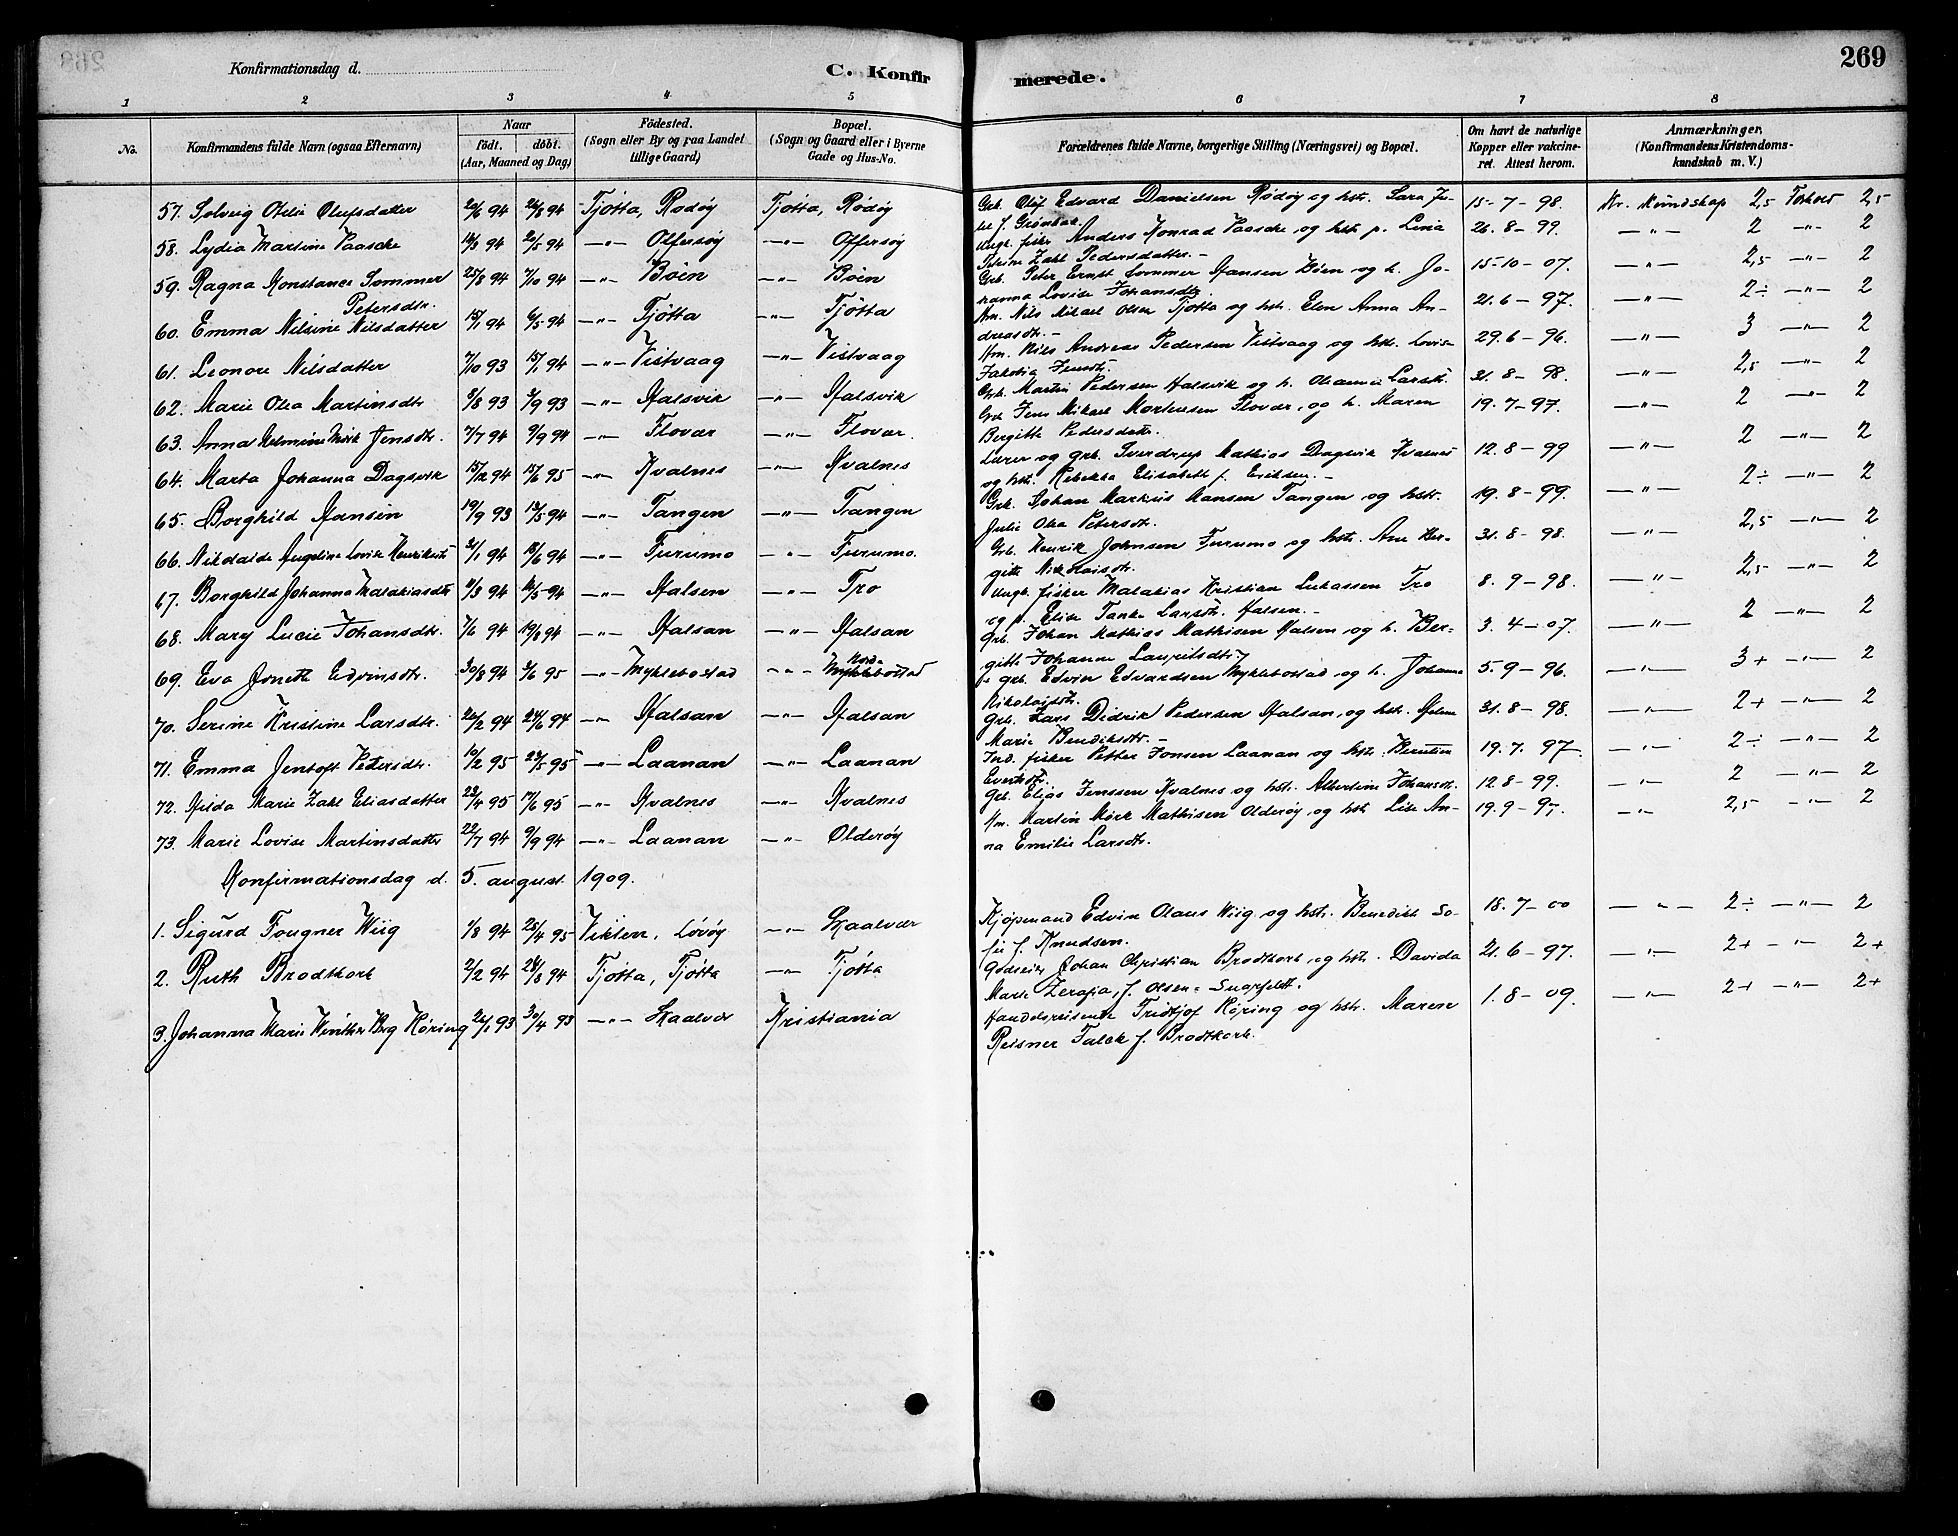 269
Konfirmationsdag d.
C. Konfirmerede.
1 2 3 4 5 6 7 8
No.
Konfirmandens fulde Navn (ogsaa Efternavn)
Naar
födt. döbt.
(Aar, Maaned og Dag)
Födested.
(Sogn eller By og paa Landet
tillige Gaard)
Bopæl.
(Sogn og Gaard eller i Byerne
Gade og Hus-No.
Forældrenes fulde Navne, borgerlige Stilling (Næringsvei) og Bopæl.
Om havt de naturlige
Kopper eller vakcine-
ret. Attest herom.
Anmærkninger,
(Konfirmandens Kristendoms-
kundskab m. V.)
57. Solveig Otelie Olufsdatter 20/6 94 26/8 94 Tjøtta, Rødøy Tjøtta, Rødøy Grb. Oluf Edvard Danielsen Rødøy og hstr. Sara 15-7-98. Kr. Kundskap 2,5 Forhold 2,5
f. Grønbæk
58. Lydia Martine Paasche 14/3 94 2/5 94 —"— Offersøy —"— Offersøy ungk. fisker Anders Konrad Paasche og hstr. p. Lina 26.8-99. —"— 2 —"— 2
Petrine Zahl Pedersdatter.-
59. Ragna Konstance Sommer 25/8 94 7/10 94 —"— Bøen —"— Bøen Grb. Peter Ernst Sommer Hansen Bøen og h. Jo- 15-10-07. —"— 2,5 —"— 2
Petersdtr. hanna Lovise Johansdtr
60. Emma Nilsine Nilsdatter 15/1 94 6/5 94 —"— Tjøtta —"— Tjøtta Am. Nils Mikael Olsen Tjøtta og hstr. Elen Anna An- 21.6-97. —"— 2÷ —"— 2
dreasdtr.-
61. Leonore Nilsdatter 7/10 93 15/1 94 —"— Vistvaag —"— Vistvaag Hm. Nils Andreas Pedersen Vistvaag og hstr. Lovise 29.6-96. —"— 3 —"— 2
Jakobia Jensdtr.
62. Marie Olea Martinsdtr 8/8 93 3/9 93 —"— Halsvik —"— Halsvik Grb. Martin Pedersen Halsvik og h. Olianna Larsdtr. 31.8-98. —"— 2,5 —"— 2
63. Anna Helmine Mörk Jensdtr. 7/7 94 9/9 94 —"— Flovær —"— Flovær. Grb Jens Mikael Mortensen Flovær, og h. Maren 19.7-97. —"— 2 —"— 2
Bergitte Pedersdattr.
64. Marta Johanna Dagsvik 15/2 94 15/6 95 —"— Kvalnes —"— Kvalnes Lærer og grb. Sverdrup Mathias Dagsvik Kvalnes 12.8-99 —"— 2 —"— 2
og hstr. Rebekka Elisabeth f. Eriksen.-
65. Borghild Hansen 19/9 93 13/5 94 —"— Tangen —"— Tangen Grb. Johan Markus Hansen Tangen og hstr. 19.8-99. —"— 2÷ —"— 2
Julie Olea Petersdtr.
66. Nikolaide Angeline Lovise Henriksdtr 31/1 94 18/6 94 —"— Furumo —"— Furumo. Grb. Henrik Johnsen Furumo og hstr. Ane Ber- 31.8-98. —"— 2,5 —"— 2
gitte Nikolaisdtr.
67. Borghild Johanna Malakiasdtr 11/3 94 12/5 94 —"— Halsen —"— Tro ungk. fisker Malakias Kristian Lukassen Tro 8.9-98. —"— 2,5 —"— 2
og p. Elise Tanke Larsdtr. Halsen.-
68. Mary Lucie Johansdtr. 7/6 94 19/8 94 —"— Halsan —"— Halsan Grb. Johan Mathias Mathisen Halsen og h. Ber- 3.4-07. —"— 2 —"— 2
gitte Johanne Lauritsdtr.
69. Eva Jonette Edvinsdtr. 30/8 94 3/6 95 —"— Myklebostad —"— Nord-Myklebostad grb. Edvin Edvardsen Myklebostad og h. Johanna 5.9-96. —"— 3+ —"— 2
Nikolaisdtr.
70. Serine Kristine Larsdtr. 20/2 94 24/6 94 —"— Halsan —"— Halsan Grb. Lars Didrik Pedersen Halsan, og hstr. Helene 31.8-98. —"— 2+ —"— 2
Marie Bendiksdtr.-
71. Emma Jentoft Petersdtr. 10/2 95 27/5 95 —"— Laanan —"— Laanan Ind. fisker Petter Jonsen Laanan og hstr. Berntine 19.7.97. —"— 2÷ —"— 2
Evertsdtr.
72. Hilda Marie Zahl Eliasdatter 22/4 95 17/6 95 —"— Kvalnes —"— Kvalnes Grb. Elias Jenssen Kvalnes og hstr. Albertine Johansdtr. 12.8-99. —"— 2 —"— 2
73. Marie Lovise Martinsdatter 22/7 94 9/9 94 —"— Laanan —"— Olderøy Hm. Martin Mörk Mathisen Olderøy og hstr. Lise An- 19.9-97. —"— 2,5 —"— 2
na Emilie Larsdtr.
Konfirmationsdag d. 5. august 1909.
1. Sigurd Fougner Wiig 1/8 94 28/4 95 Vikten, Løvøy —"— Skaalvær Kjøpmand Edvin Olaus Wiig og hstr. Benedikte So- 18.7-00 —"— 2÷ —"— 2
fie f. Knudsen.
2. Ruth Brodtkorb 2/2 94 24/8 94 Tjøtta, Tjøtta —"— Tjøtta Godseier Johan Christian Brodtkorb, og hstr. Davida 21.6-97. —"— 2+ —"— 2+
Marie Zerafia, f. Olsen-
3. Johanna Marie Winther Berg Høring 26/1 93 30/4 93 —"— Skaalvær Kristiania Handelsreisende Fridtjof Høring og hstr. Maren 1.8-09. —"— 2+ —"— 2+
Reisner Falck f. Brodtkorb.